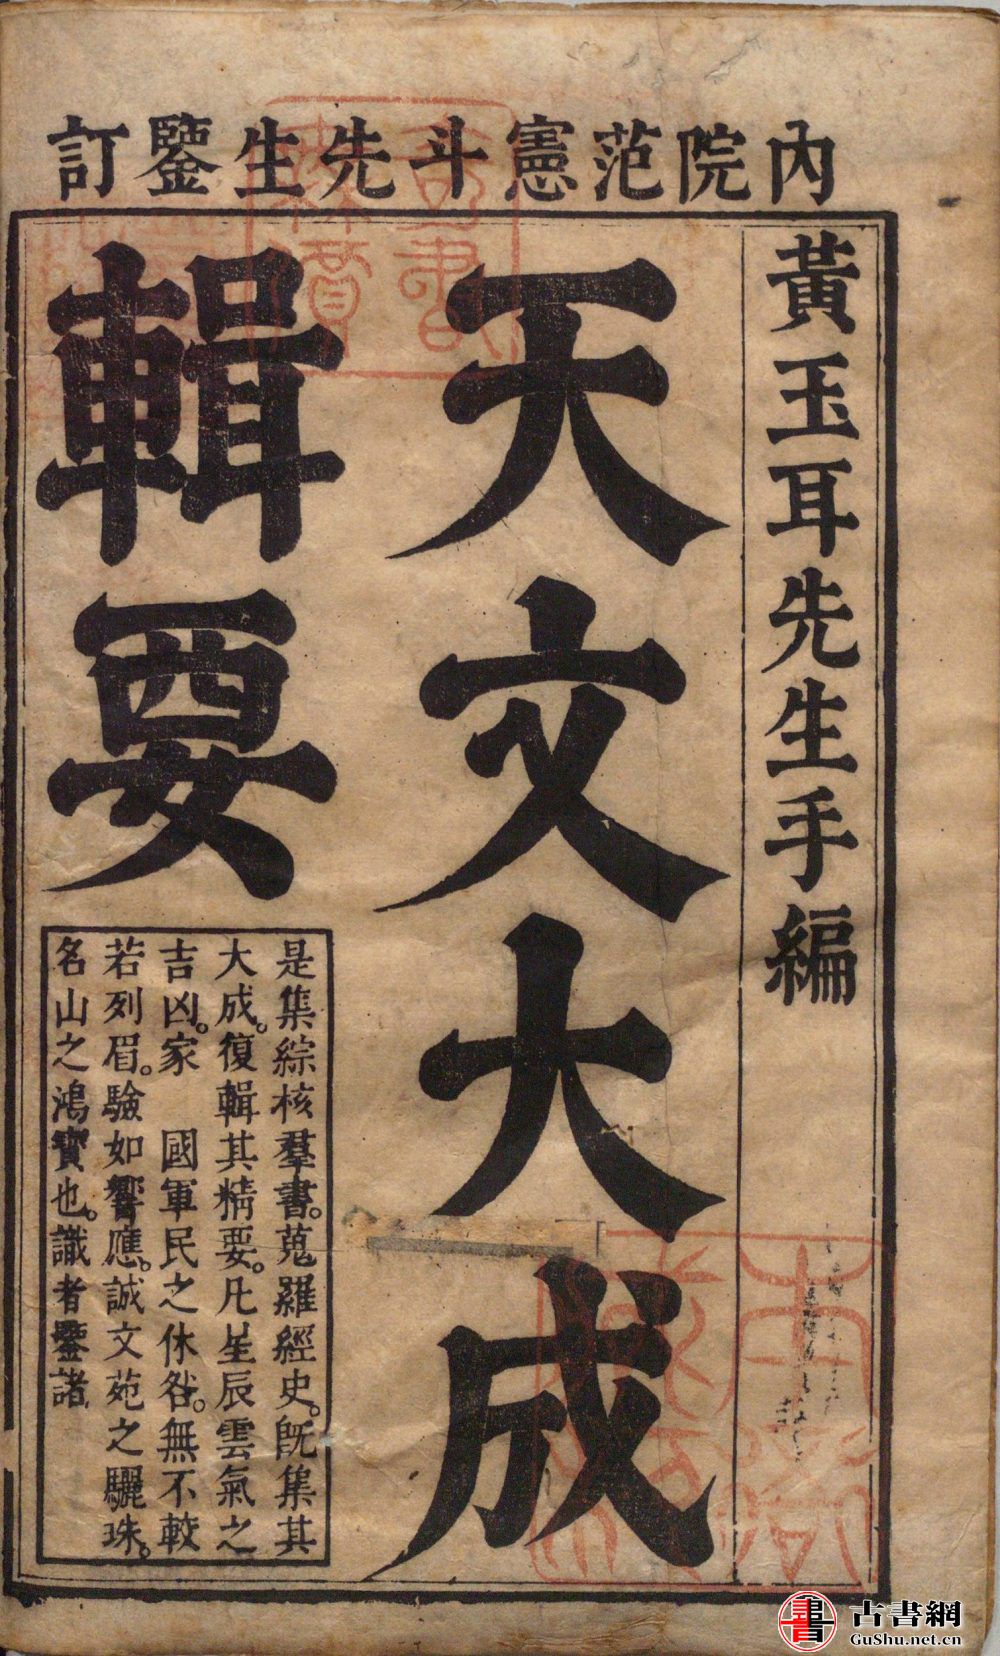 內院范憲斗先生鑒訂
黃玉耳先生手編
天文大成
輯要
是集綜核羣書。蒐羅經史。旣集其
大成。復輯其精要。凡星辰雲氣之
吉凶。家　國軍民之休咎。無不較
若列眉。驗如響應。誠文苑之驪珠。
名山之鴻寶也。識者鑒諸
古書網
GuShu.net.cn